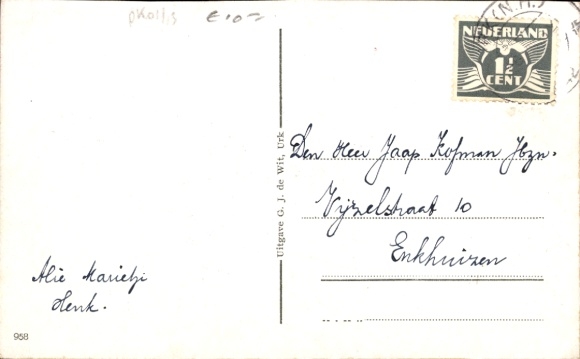 pk01/13
€10=
(N.H.)
NEDERLAND
1½
CENT
Uitgave G. J. de Wit, Urk
Den Heer Jaap Kofman Jbzn.
Vijzelstraat 10
Enkhuizen
Alie Marietji
Henk.
958